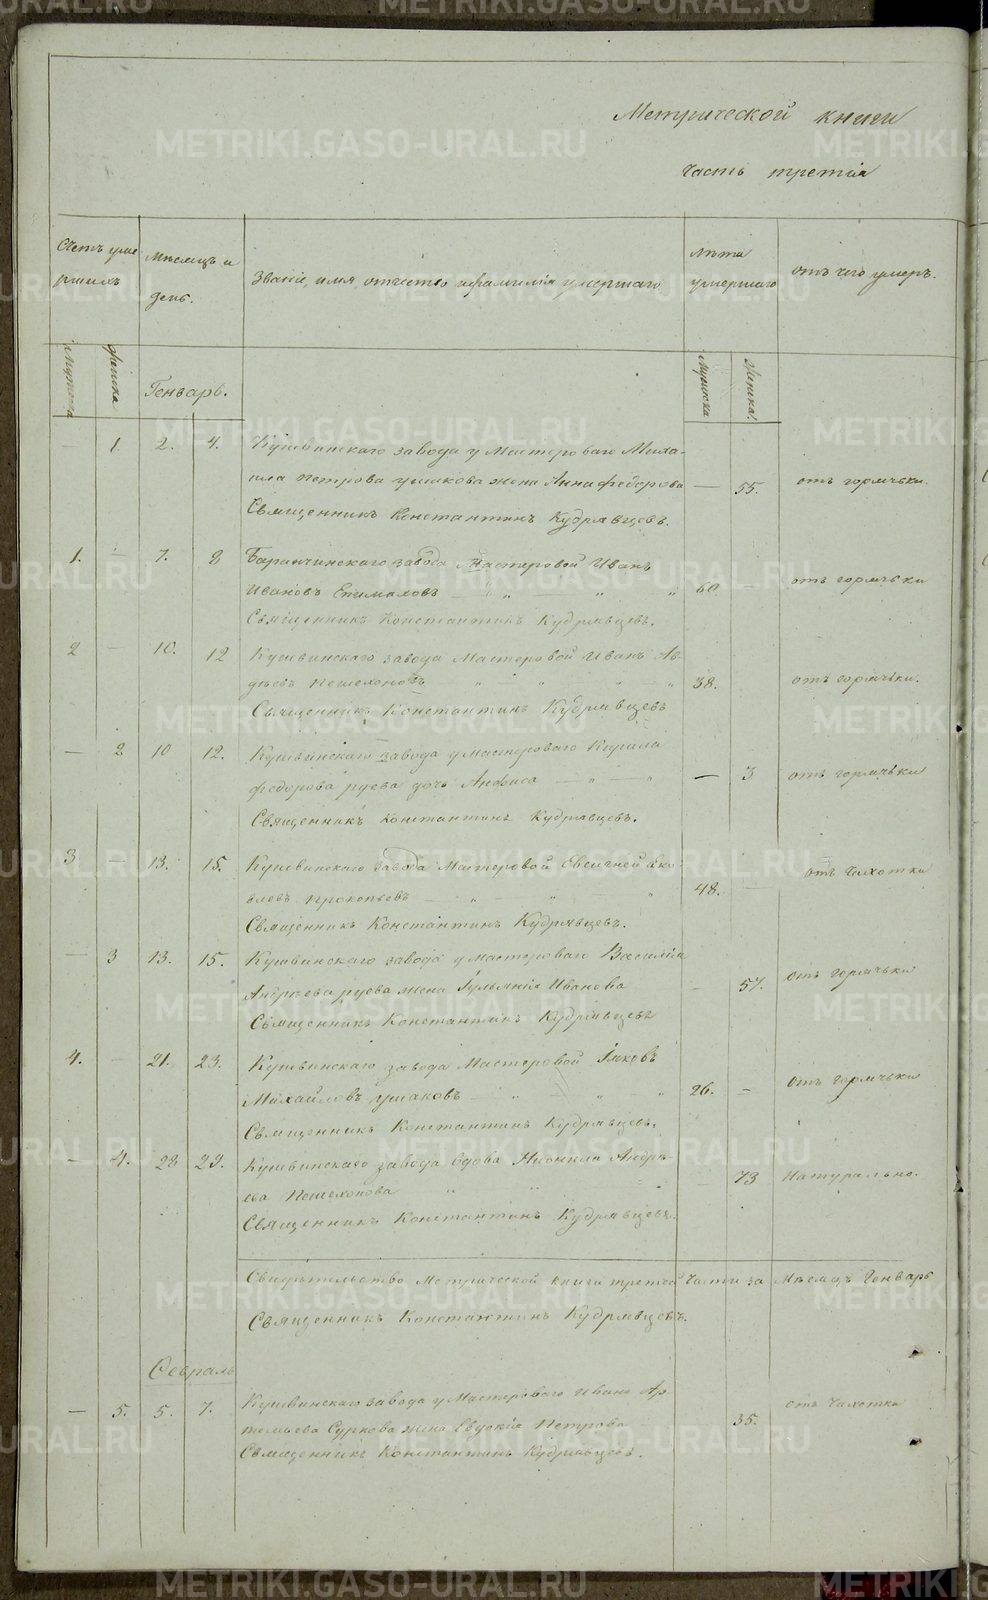 Метрической книги
часть третія
Счетъ уме
ршихъ
Мѣсяцъ и
день.
Званіе, имя отчество и фамилія умершаго
Лѣта
умершаго
отъ чего умеръ.
Мужска
Женска
Генварь.
Мужска
Женска
— 1. 2. 4. Кушвинскаго завода у Мастероваго Миха-
ила Петрова Ушакова жена Анна Федорова — 55. отъ горячьки.
Священникъ Константинъ Кудрявцевъ.
1. — 7. 8 Баранчинскаго завода Мастеровой Иванъ
Ивановъ 60. — отъ горячьки
Священникъ Константинъ Кудрявцевъ.
2 — 10. 12 Кушвинскаго завода Мастеровой Иванъ Ав-
дѣевъ Пешехоновъ 38. отъ горячьки.
Священникъ Константинъ Кудрявцевъ
— 2 10 12. Кушвинскаго завода у мастероваго Кирила
Федорова Руева дочь Анфиса — 3 отъ горячьки
Священникъ Константинъ Кудрявцевъ.
3 — 13. 15. Кушвинскаго завода Мастеровой Евсигней Яко-
влевъ Прокопьевъ 48. — отъ Чахотки
Священникъ Константинъ Кудрявцевъ.
— 3 13. 15. Кушвинскаго завода у мастероваго Василія
Андреева Руева жена Гульянія Иванова — 57. отъ горячьки
Священникъ Константинъ Кудрявцевъ
4. — 21. 23. Кушвинскаго завода Мастеровой Іяковъ
Михайловъ Ушаковъ 26. — отъ горячьки
Священникъ Константинъ Кудрявцевъ.
— 4. 28 29. Кушвинскаго завода вдова Неонила Андрѣ-
ева Пешехонова — 73 Натурально.
Священникъ Константинъ Кудрявцевъ.
Свидѣтельство Метрической книги третей Части за Мѣсяцъ Генварь
Священникъ Константинъ Кудрявцевъ.
Февраль
— 5. 5. 7. Кушвинскаго завода у Мастероваго Ивана Ар-
темьева Суркова жена Евдокія Петрова 35. отъ Чахотки
Священникъ Константинъ Кудрявцевъ.
METRIKI.GASO-URAL.RU